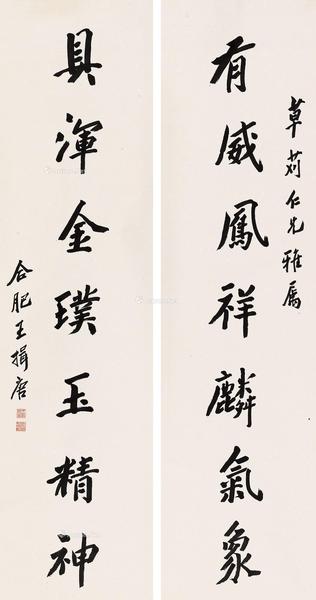 草茢仁先雅属
有威鳳祥麟氣象
具渾金璞玉精神
合肥王揖唐